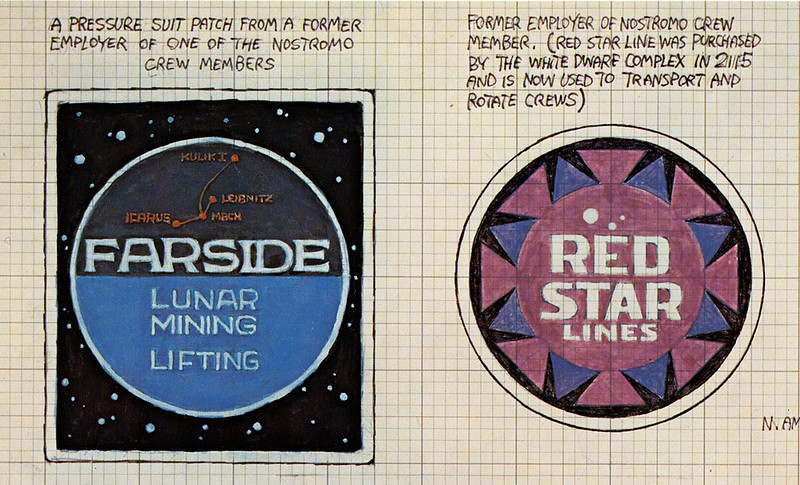 A PRESSURE SUIT PATCH FROM A FORMER
EMPLOYER OF ONE OF THE NOSTROMO
CREW MEMBERS
KULIK I
LEIBNITZ
ICARUS
MACH
FARSIDE
LUNAR
MINING
LIFTING
FORMER EMPLOYER OF NOSTROMO CREW
MEMBER. (RED STAR LINE WAS PURCHASED
BY THE WHITE DWARF COMPLEX IN 2115
AND IS NOW USED TO TRANSPORT AND
ROTATE CREWS)
RED
STAR
LINES
N. AM